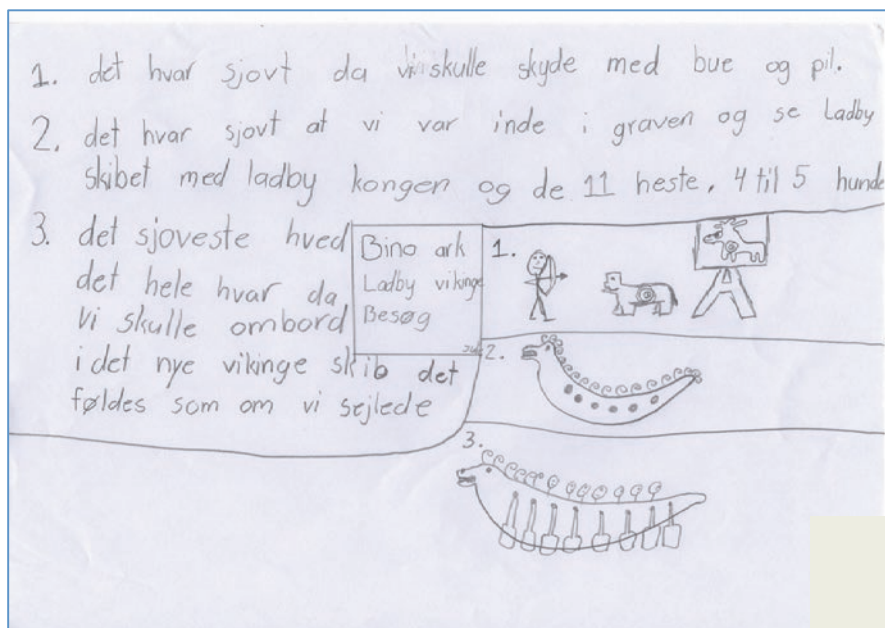 1. det hvar sjovt da vi skulle skyde med bue og pil.
2. det hvar sjovt at vi var inde i graven og se Ladby
skibet med ladby kongen og de 11 heste, 4 til 5 hunde
3. det sjoveste hved
det hele hvar da
vi skulle ombord
i det nye vikinge skib det
føldes som om vi sejlede
Bino ark
Ladby vikinge
Besøg
1.
2.
3.